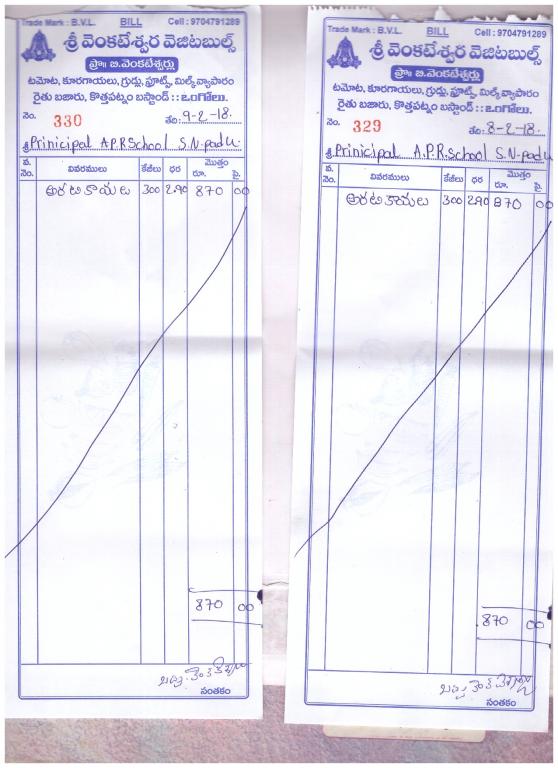 Trade Mark : B.V.L. BILL Cell : 9704791289
శ్రీ వెంకటేశ్వర వెజిటబుల్స్
ప్రొ॥ బి.వెంకటేశ్వర్లు
టమోట, కూరగాయలు, గ్రుడ్లు, ఫ్రూట్స్, మిల్క్ వ్యాపారం
రైతు బజారు, కొత్తపట్నం బస్టాండ్ :: ఒంగోలు.
నెం. 330 తేది: 9-2-18.
శ్రీ Prinicipal A.P.R School S.N-padu.
వ. నెం. వివరములు కేజీలు ధర మొత్తం రూ. పై.
అరటికాయలు 300 290 870 00
870 00
సంతకం
Trade Mark : B.V.L. BILL Cell : 9704791289
శ్రీ వెంకటేశ్వర వెజిటబుల్స్
ప్రొ॥ బి.వెంకటేశ్వర్లు
టమోట, కూరగాయలు, గ్రుడ్లు, ఫ్రూట్స్, మిల్క్ వ్యాపారం
రైతు బజారు, కొత్తపట్నం బస్టాండ్ :: ఒంగోలు.
నెం. 329 తేది: 8-2-18.
శ్రీ Prinicipal A.P.R School S.N-padu
వ. నెం. వివరములు కేజీలు ధర మొత్తం రూ. పై.
అరటికాయలు 300 290 870 00
870 00
సంతకం